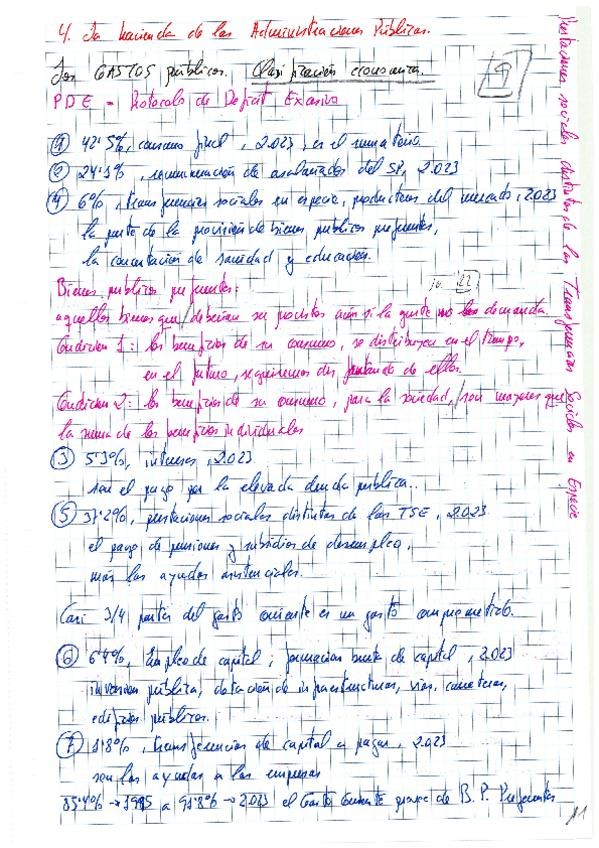 4. La hacienda de las Administraciones Públicas.
Los GASTOS públicos. Clasificación económica.
9
PDE = Protocolo de Deficit Excesivo
① 42'5%, consumo final, 2.023, es el sumatorio.
② 24'1%, remuneración de asalariados del SP, 2.023
④ 6%, transferencias sociales en especie, productores del mercado, 2.023
la parte de la provisión de bienes públicos preferentes,
la concertación de sanidad y educación.
Bienes publicos preferentes:
22
aquellos bienes que deberían ser provistos aún si la gente no los demanda.
Condicion 1: los beneficios de su consumo, se distribuyen en el tiempo,
en el futuro, seguiremos disfrutando de ellos.
Condicion 2: los beneficios de su consumo, para la sociedad, son mayores que
la suma de los beneficios individuales
③ 5'3%, intereses, 2.023
son el pago por la elevada deuda publica..
⑤ 37'2%, prestaciones sociales distintas de las TSE, 2.023
el pago de pensiones y subsidios de desempleo,
más las ayudas asistenciales.
Casi 3/4 partes del gasto corriente es un gasto comprometido.
⑥ 6'4%, Empleo de capital; formación bruta de capital, 2.023
inversion pública, dotación de infraestructuras, vías, carreteras,
edificios publicos.
⑦ 1'8%, transferencias de capital a pagar, 2.023
son las ayudas a las empresas
85'4% → 1995 a 91'8% → 2.023 el Gasto Corriente provee de B. P. Preferentes
11
Prestaciones sociales distintas de las Transferencias Sociales en Especie